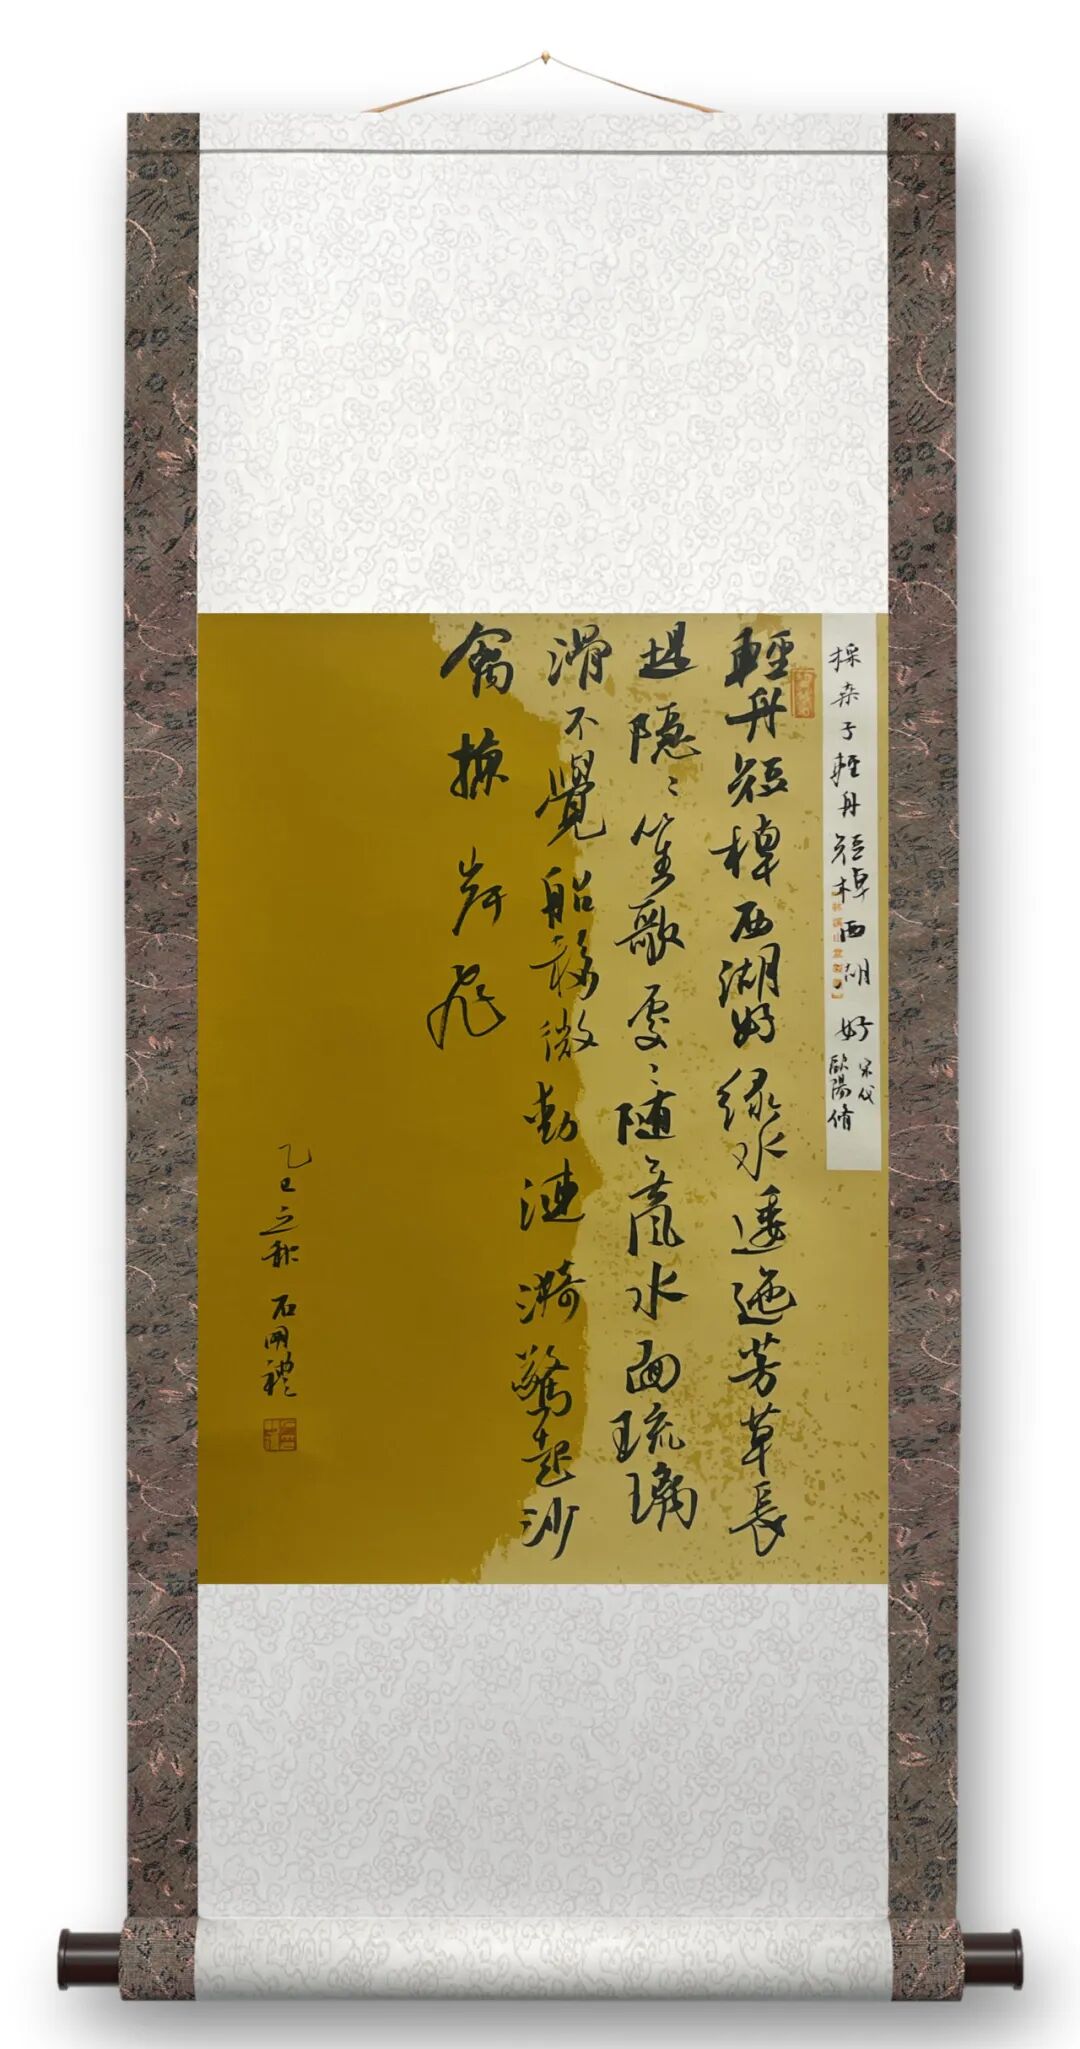 採桑子輕舟短棹西湖好
宋代
歐陽脩
輕舟短棹西湖好綠水逶迤芳草長
堤隱〻笙歌處〻隨無風水面琉璃
滑不覺船移微動漣漪驚起沙
禽掠岸飛
乙巳立秋 石開禮